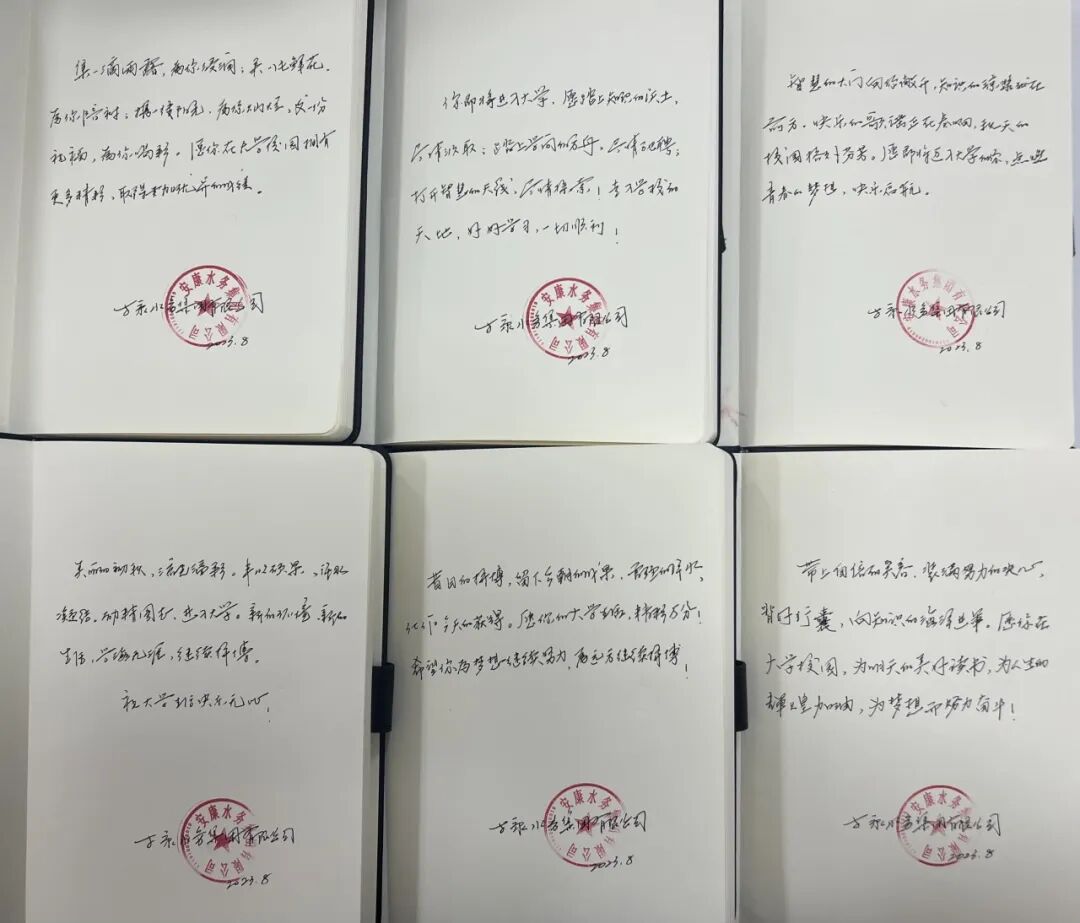 集一滴雨露，为你浸润；采一比鲜花，
为你陪衬；撷一缕阳光，为你灿烂；发一份
祝福，为你喝彩。愿你在大学校园拥有
更多精彩，取得更加优异的成绩。
安康水务集团有限公司
2023.8
你即将进入大学，愿踏上知识的沃土，
尽情汲取；踏上学问的方舟，尽情驰骋；
打开智慧的天线，尽情探索！走入学校的
天地，好好学习，一切顺利！
安康水务集团有限公司
2023.8
智慧的大门向你敞开，知识的就在
前方，快乐的歌谣正在奏响，秋天的
校园格外芬芳。愿即将迈入大学的你，点燃
青春的梦想，快乐启航。
安康水务集团有限公司
2023.8
美丽的初秋，流色溢彩。丰收硕果，
凝结。动精图志，进入大学，新的环境，新的
生活，学海无涯，继续拼搏。
祝大学生活快乐无忧！
安康水务集团有限公司
2023.8
昔日的拼搏，留下今朝的成果，辛勤的汗水，
化作今天的获得。愿你的大学生活，精彩万分！
希望你为梦想继续努力，为远方继续拼搏！
安康水务集团有限公司
2023.8
带上自信的笑容，装满努力的决心，
背好行囊，向知识的海洋进军。愿你在
大学校园，为明天的美好读书，为人生的
辉煌加油，为梦想而努力奋斗！
安康水务集团有限公司
2023.8